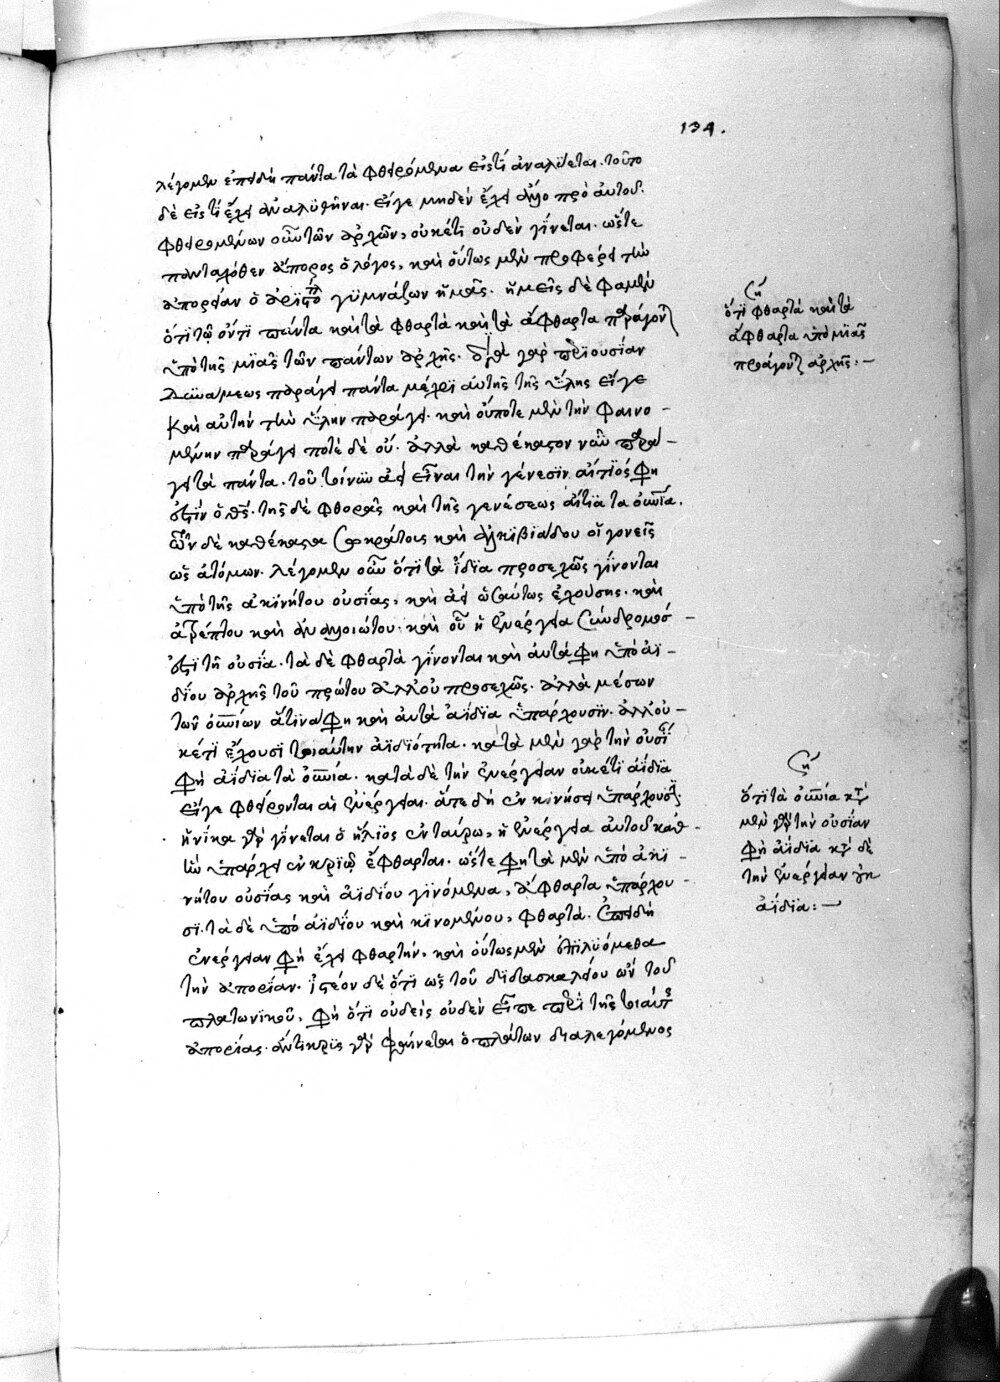 134.
λέγομεν ἐπειδὴ πάντα τὰ φθειρόμενα εἰς τί ἀναλύεται. τοῦτο
δὲ εἰς τί ἔχει ἀναλυθῆναι. εἴγε μηδὲν ἔχει ἄλλο πρὸ αὐτοῦ.
φθειρομένων οὖν τῶν ἀρχῶν, οὐκέτι οὐδὲν γίνεται. ὥστε
πανταχόθεν ἄπορος ὁ λόγος, καὶ οὕτως μὲν προφέρει τὴν
ἀπορίαν ὁ ἀριστο γυμνάζων ἡμᾶς. ἡμεῖς δὲ φαμὲν
ὅτι τῷ ὄντι πάντα καὶ τὰ φθαρτὰ καὶ τὰ ἄφθαρτα παράγονται
ὑπὸ τῆς μιᾶς τῶν πάντων ἀρχῆς. διὰ γὰρ περιουσίαν
δυνάμεως παράγει πάντα μέχρι αὐτῆς τῆς ὕλης εἴγε
καὶ αὐτὴν τὴν ὕλην παράγει. καὶ οὔποτε μὲν τὴν φαινο-
μένην παράγει ποτὲ δὲ οὔ. ἀλλὰ καθέκαστον νῦν παρά-
γει τὰ πάντα. τοῦ τοίνυν ἀεὶ εἶναι τὴν γένεσιν αἴτιός φη
ἐστὶν ὁ θς. τῆς δὲ φθορᾶς καὶ τῆς γενέσεως αἴτια τα οὐνια.
τῶν δὲ καθέκαστα σωκράτους καὶ ἀλκιβιάδου οἱ γονεῖς
ὡς ἀτόμων. λέγομεν οὖν ὅτι τὰ ἴδια προσεχῶς γίνονται
ὑπὸ τῆς ἀκινήτου οὐσίας, καὶ ἀεὶ ὡσαύτως ἐχούσης. καὶ
ἀτρέπτου καὶ ἀναλλοιώτου. καὶ οὗ ἡ ἐνέργεια σύνδρομος
ἐστι τῇ οὐσίᾳ. τὰ δὲ φθαρτὰ γίνονται καὶ αὐτά φη ὑπὸ ἀϊ-
δίου ἀρχῆς τοῦ πρώτου ἀλλ' οὐ προσεχῶς. ἀλλὰ μέσων
τῶν οὐνίων ἅτινά φη καὶ αὐτὰ ἀΐδια ὑπάρχουσιν. ἀλλ' οὐ-
κέτι ἔχουσι τοιαύτην ἀϊδιότητα. κατὰ μὲν γὰρ τὴν οὐσί
φη ἀΐδια τὰ οὐνια. κατὰ δὲ τὴν ἐνέργειαν οὐκέτι ἀΐδια
εἴγε φθείρονται αἱ ἐνέργειαι. ἅτε δὴ ἐν κινήσει ὑπάρχουσι.
ἡνίκα γὰρ γίνεται ὁ ἥλιος ἐν ταύρῳ, ἡ ἐνέργεια αὐτοῦ καθ-
ἣν ὑπάρχει ἐν κριῷ ἔφθαρται. ὥστε φη τὰ μὲν ὑπὸ ἀκι-
νήτου οὐσίας καὶ ἀϊδίου γινόμενα, ἄφθαρτα ὑπάρχου-
σι. τὰ δὲ ὑπὸ ἀϊδίου καὶ κινομένου, φθαρτά. ἐπειδὴ
ἐνέργειαν φη ἔχει φθαρτήν. καὶ οὕτως μὲν ἐπιλυόμεθα
τὴν ἀπορίαν. ἰστέον δὲ ὅτι ὡς τοῦ διδασκαλείου ὢν τοῦ
πλατωνικοῦ, φη ὅτι οὐδεὶς οὐδὲν εἶπε περὶ τῆς τοιαύτης
ἀπορίας. ἄντικρυς γὰρ φαίνεται ὁ πλάτων διαλεγόμενος
ση
ὅτι φθαρτὰ καὶ τὰ
ἄφθαρτα ὑπὸ μιᾶς
παράγονται ἀρχῆς:-
ση
ὅτι τὰ οὐνια κατὰ
μὲν γὰρ τὴν οὐσίαν
φη ἀΐδια κατὰ δὲ
τὴν ἐνέργειαν οὐκ
ἀΐδια:-